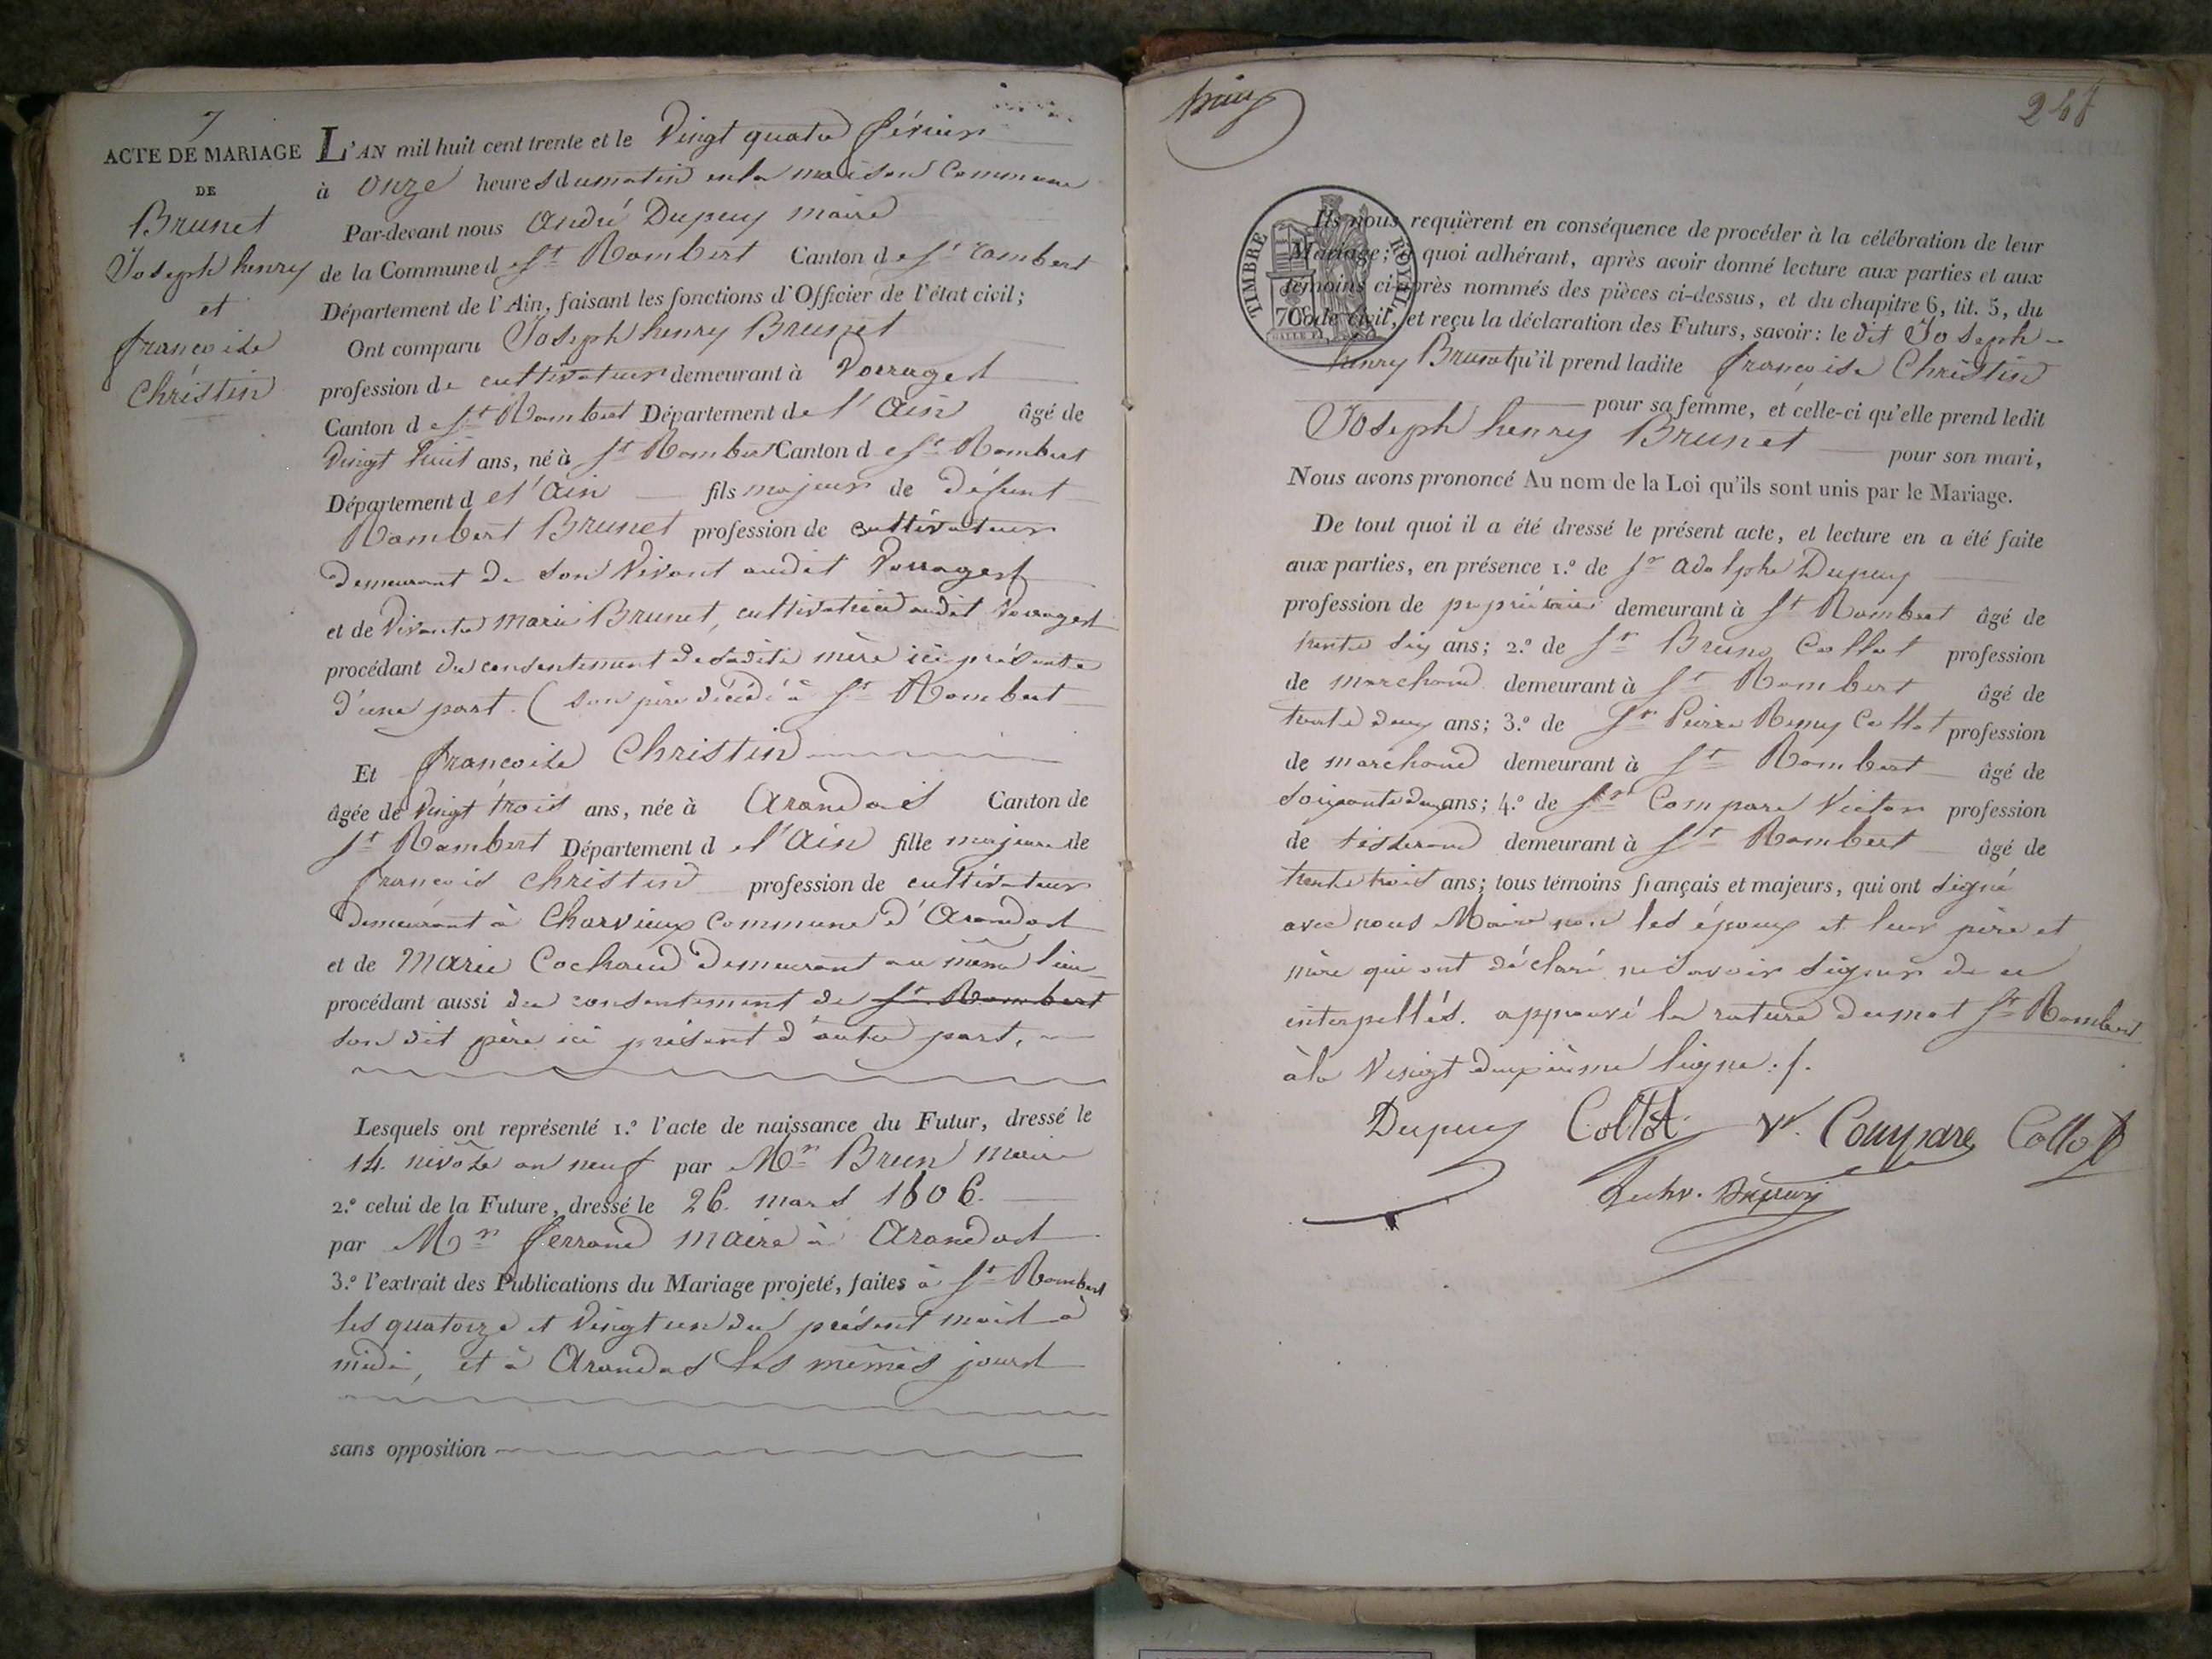 7
ACTE DE MARIAGE
DE
Brunet
Joseph henry
et
françoise
Christin
L'AN mil huit cent trente et le Vingt quatre février
à onze heures du matin en la maison Commune
Par-devant nous André Dupuy maire
de la Commune de St Rambert Canton de St rambert
Département de l'Ain, faisant les fonctions d'Officier de l'état civil;
Ont comparu Joseph henry Brunet
profession de cultivateur demeurant à Vorrages
Canton de St Rambert Département de l'Ain âgé de
Vingt huit ans, né à St Rambert Canton de St Rambert
Département de l'Ain fils majeur de défunt
Rambert Brunet profession de cultivateur
demeurant de son Vivant audit Vorrages
et de Vivante Marie Brunet, cultivatrice audit Vorrages
procédant du consentement de sadite mère ici présente
d'une part. ( son père décédé à St Rambert
Et françoise Christin
âgée de Vingt trois ans, née à Arandas Canton de
St Rambert Département de l'Ain fille majeure de
françois Christin profession de cultivateur
demeurant à Charvieux commune d'Arandas
et de Marie Cochaud demeurant au même lieu
procédant aussi du consentement de St Rambert
son dit père ici présent d'autre part,
Lesquels ont représenté 1.º l'acte de naissance du Futur, dressé le
14. nivôse an neuf par Mr Brun maire
2.º celui de la Future, dressé le 26. mars 1806.
par Mr ferrand maire à Arandas
3.º l'extrait des Publications du Mariage projeté, faites à St Rambert
les quatorze et Vingt un du présent mois à
midi, et à Arandas les mêmes jours
sans opposition
TIMBRE ROYAL
Ils nous requièrent en conséquence de procéder à la célébration de leur
Mariage; à quoi adhérant, après avoir donné lecture aux parties et aux
témoins ci-après nommés des pièces ci-dessus, et du chapitre 6, tit. 5, du
Code civil, et reçu la déclaration des Futurs, savoir: le dit Joseph
henry Brunet qu'il prend ladite françoise Christin
pour sa femme, et celle-ci qu'elle prend ledit
Joseph henry Brunet pour son mari,
Nous avons prononcé Au nom de la Loi qu'ils sont unis par le Mariage.
De tout quoi il a été dressé le présent acte, et lecture en a été faite
aux parties, en présence 1.º de Sr Adolphe Dupuy
profession de propriétaire demeurant à St Rambert âgé de
trente six ans; 2.º de Sr Bruno Collot profession
de marchand demeurant à St Rambert âgé de
trente deux ans; 3.º de Sr Pierre Remy Collot profession
de marchand demeurant à St Rambert âgé de
soixante deux ans; 4.º de Sr Compare Victor profession
de tisserand demeurant à St Rambert âgé de
trente trois ans; tous témoins français et majeurs, qui ont signé
avec nous Maire non les époux et leur père et
mère qui ont déclaré ne savoir signer de ce
interpellés. approuvé la rature du mot St Rambert
à la Vingt deuxième ligne./.
Dupuy Collot Vr. Compare Collot
Dupuy